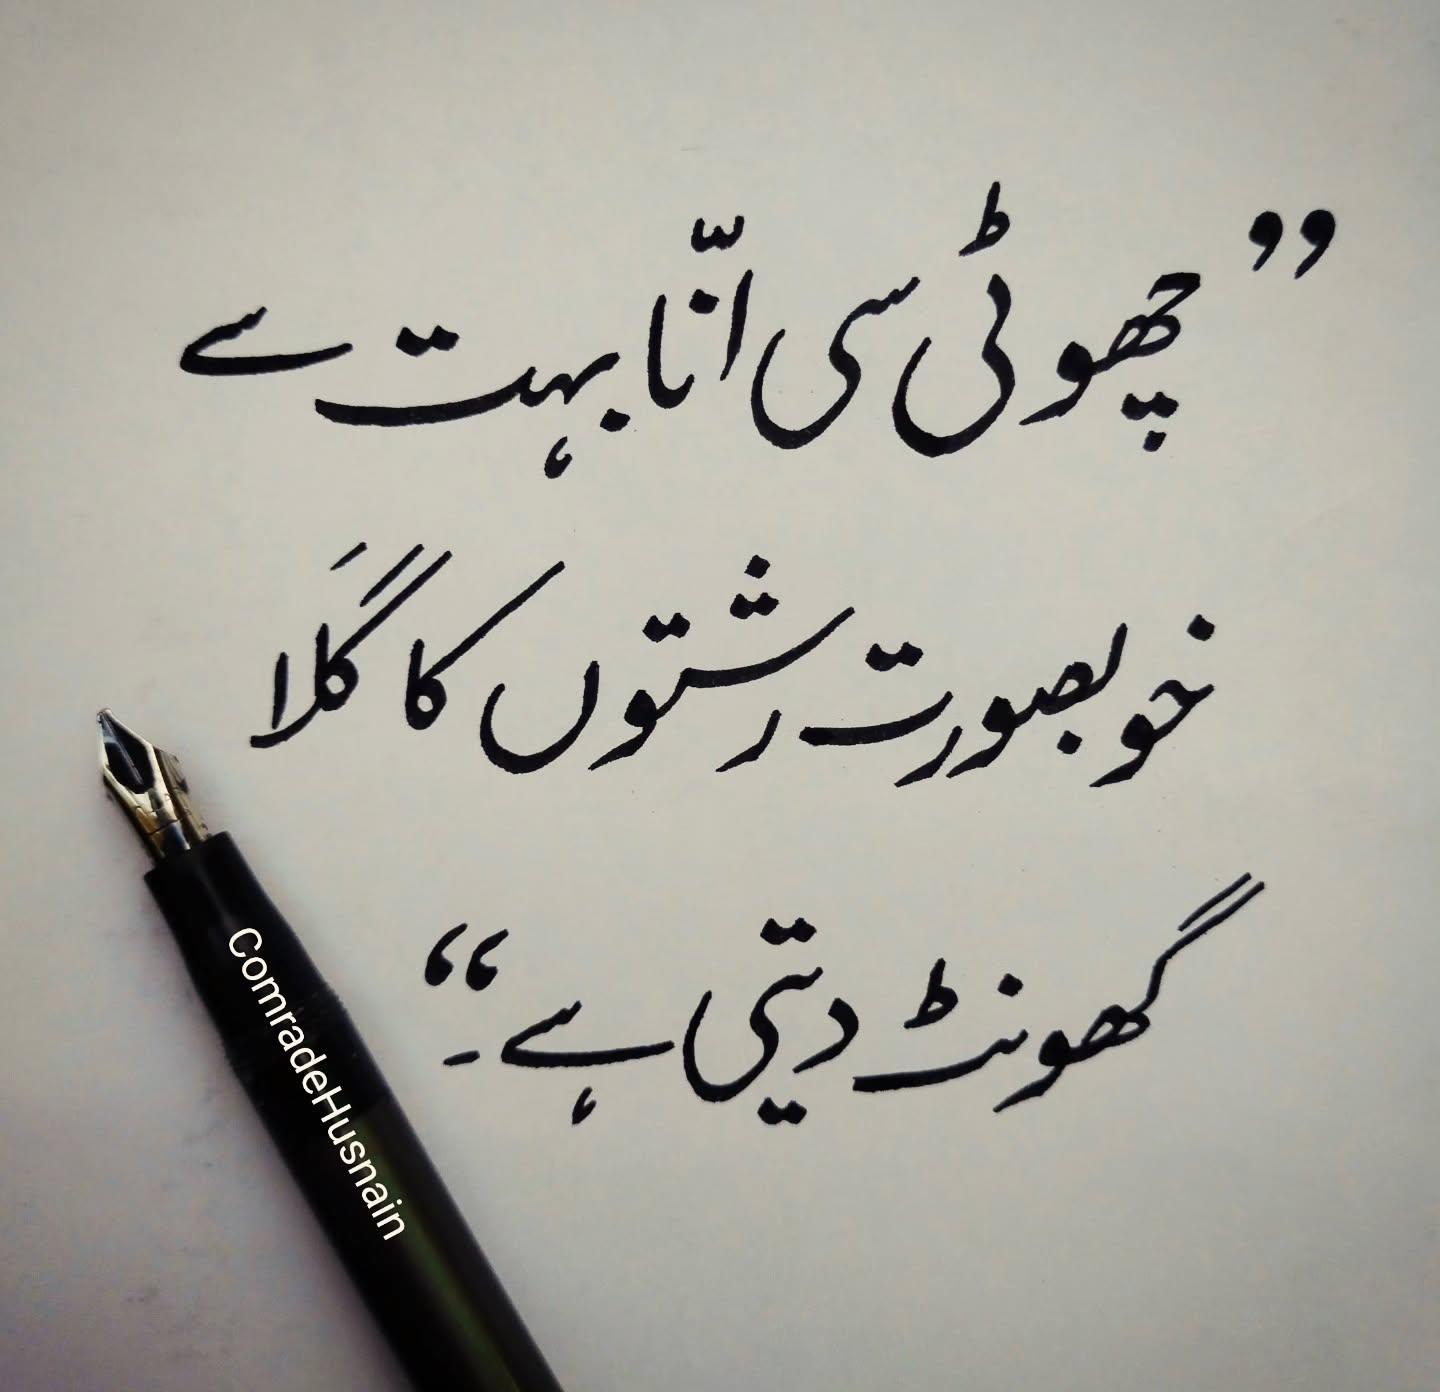 ”چھوٹی سی انّا بہت سے
خوبصورت رشتوں کا گَلا
گھونٹ دیتی ہے۔“
ComradeHusnain